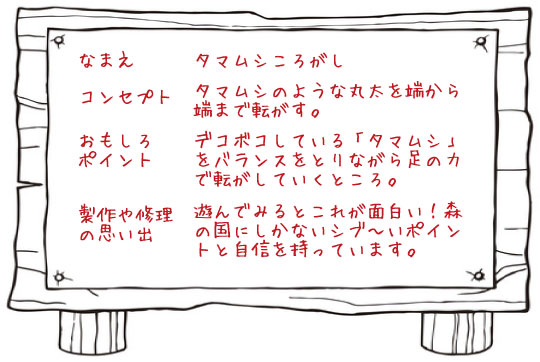 なまえ タマムシころがし
コンセプト タマムシのような丸太を端から
端まで転がす。
おもしろ デコボコしている「タマムシ」
ポイント をバランスをとりながら足の力
で転がしていくところ。
製作や修理 遊んでみるとこれが面白い！森
の思い出 の国にしかないシブ〜いポイン
トと自信を持っています。